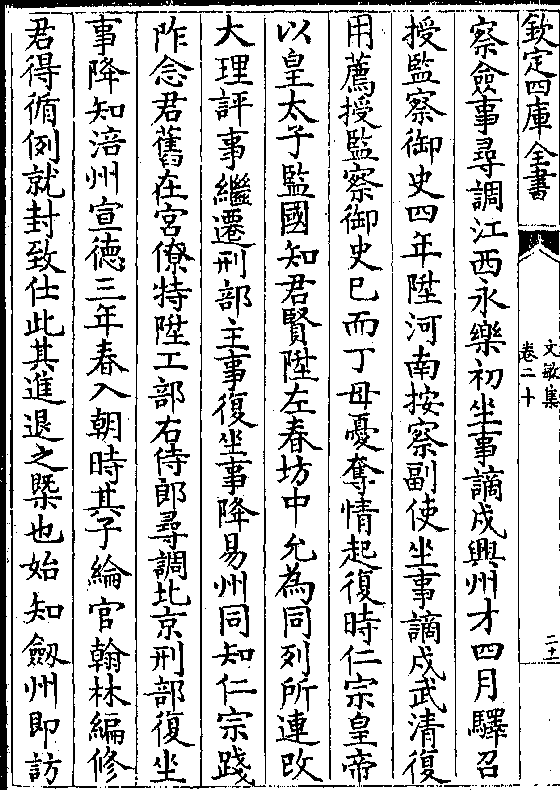 欽定四庫全書
文敏集
卷二十
二十
察僉事尋調江西永樂初坐事謫戍興州才四月驛召
授監察御史四年陞河南按察副使坐事謫戍武清復
用薦授監察御史已而丁母憂奪情起復時仁宗皇帝
以皇太子監國知君賢陞左春坊中允為同列所連改
大理評事繼遷刑部主事復坐事降易州同知仁宗踐
阼念君舊在宮僚特陞工部右侍郎尋調北京刑部復坐
事降知涪州宣德三年春入朝時其子綸官翰林編修
君得循例就封致仕此其進退之槩也始知劔州即訪